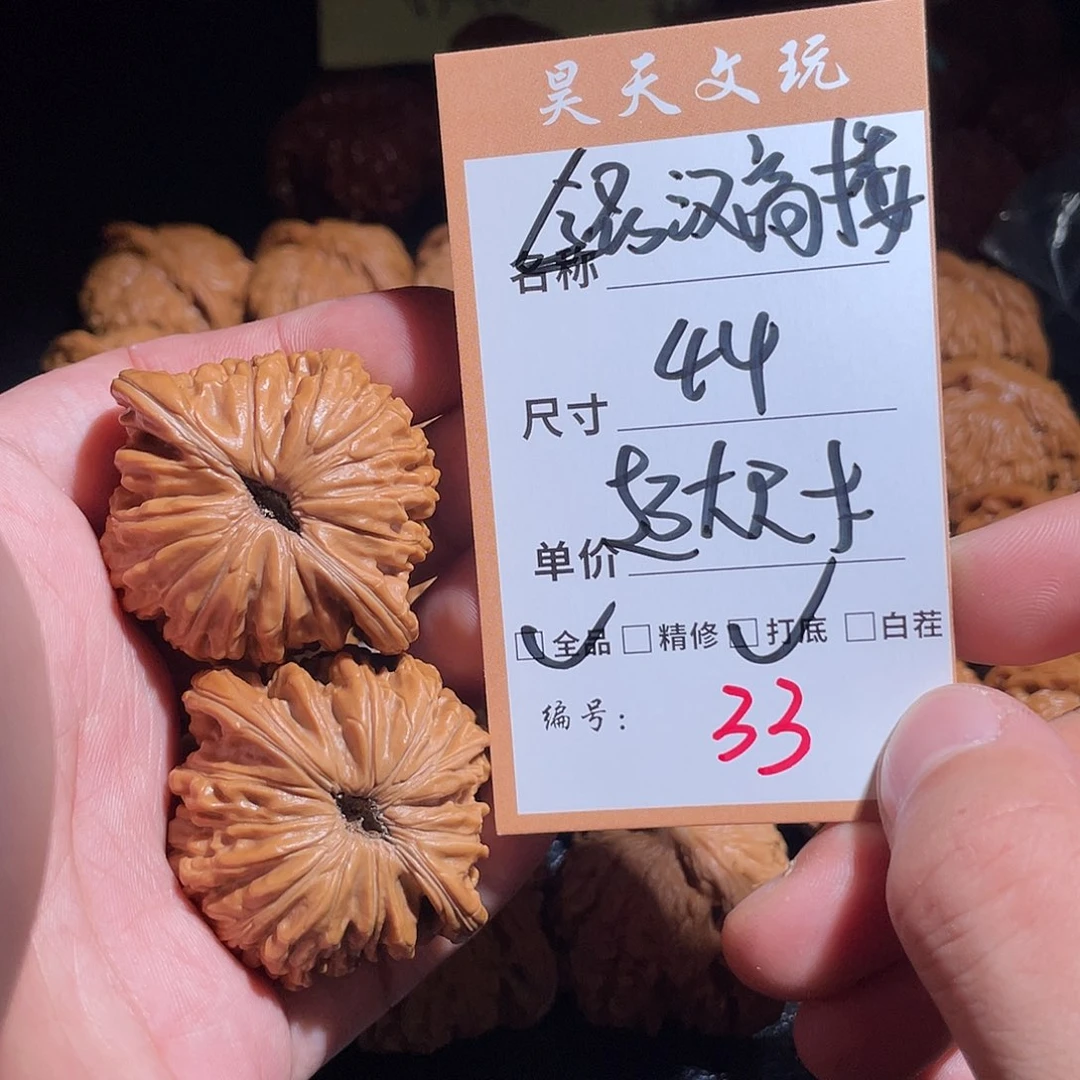 昊天文玩
名称 银汉高
尺寸 44
单价 超大尺寸
全品 精修 打底 白茬
编号： 33